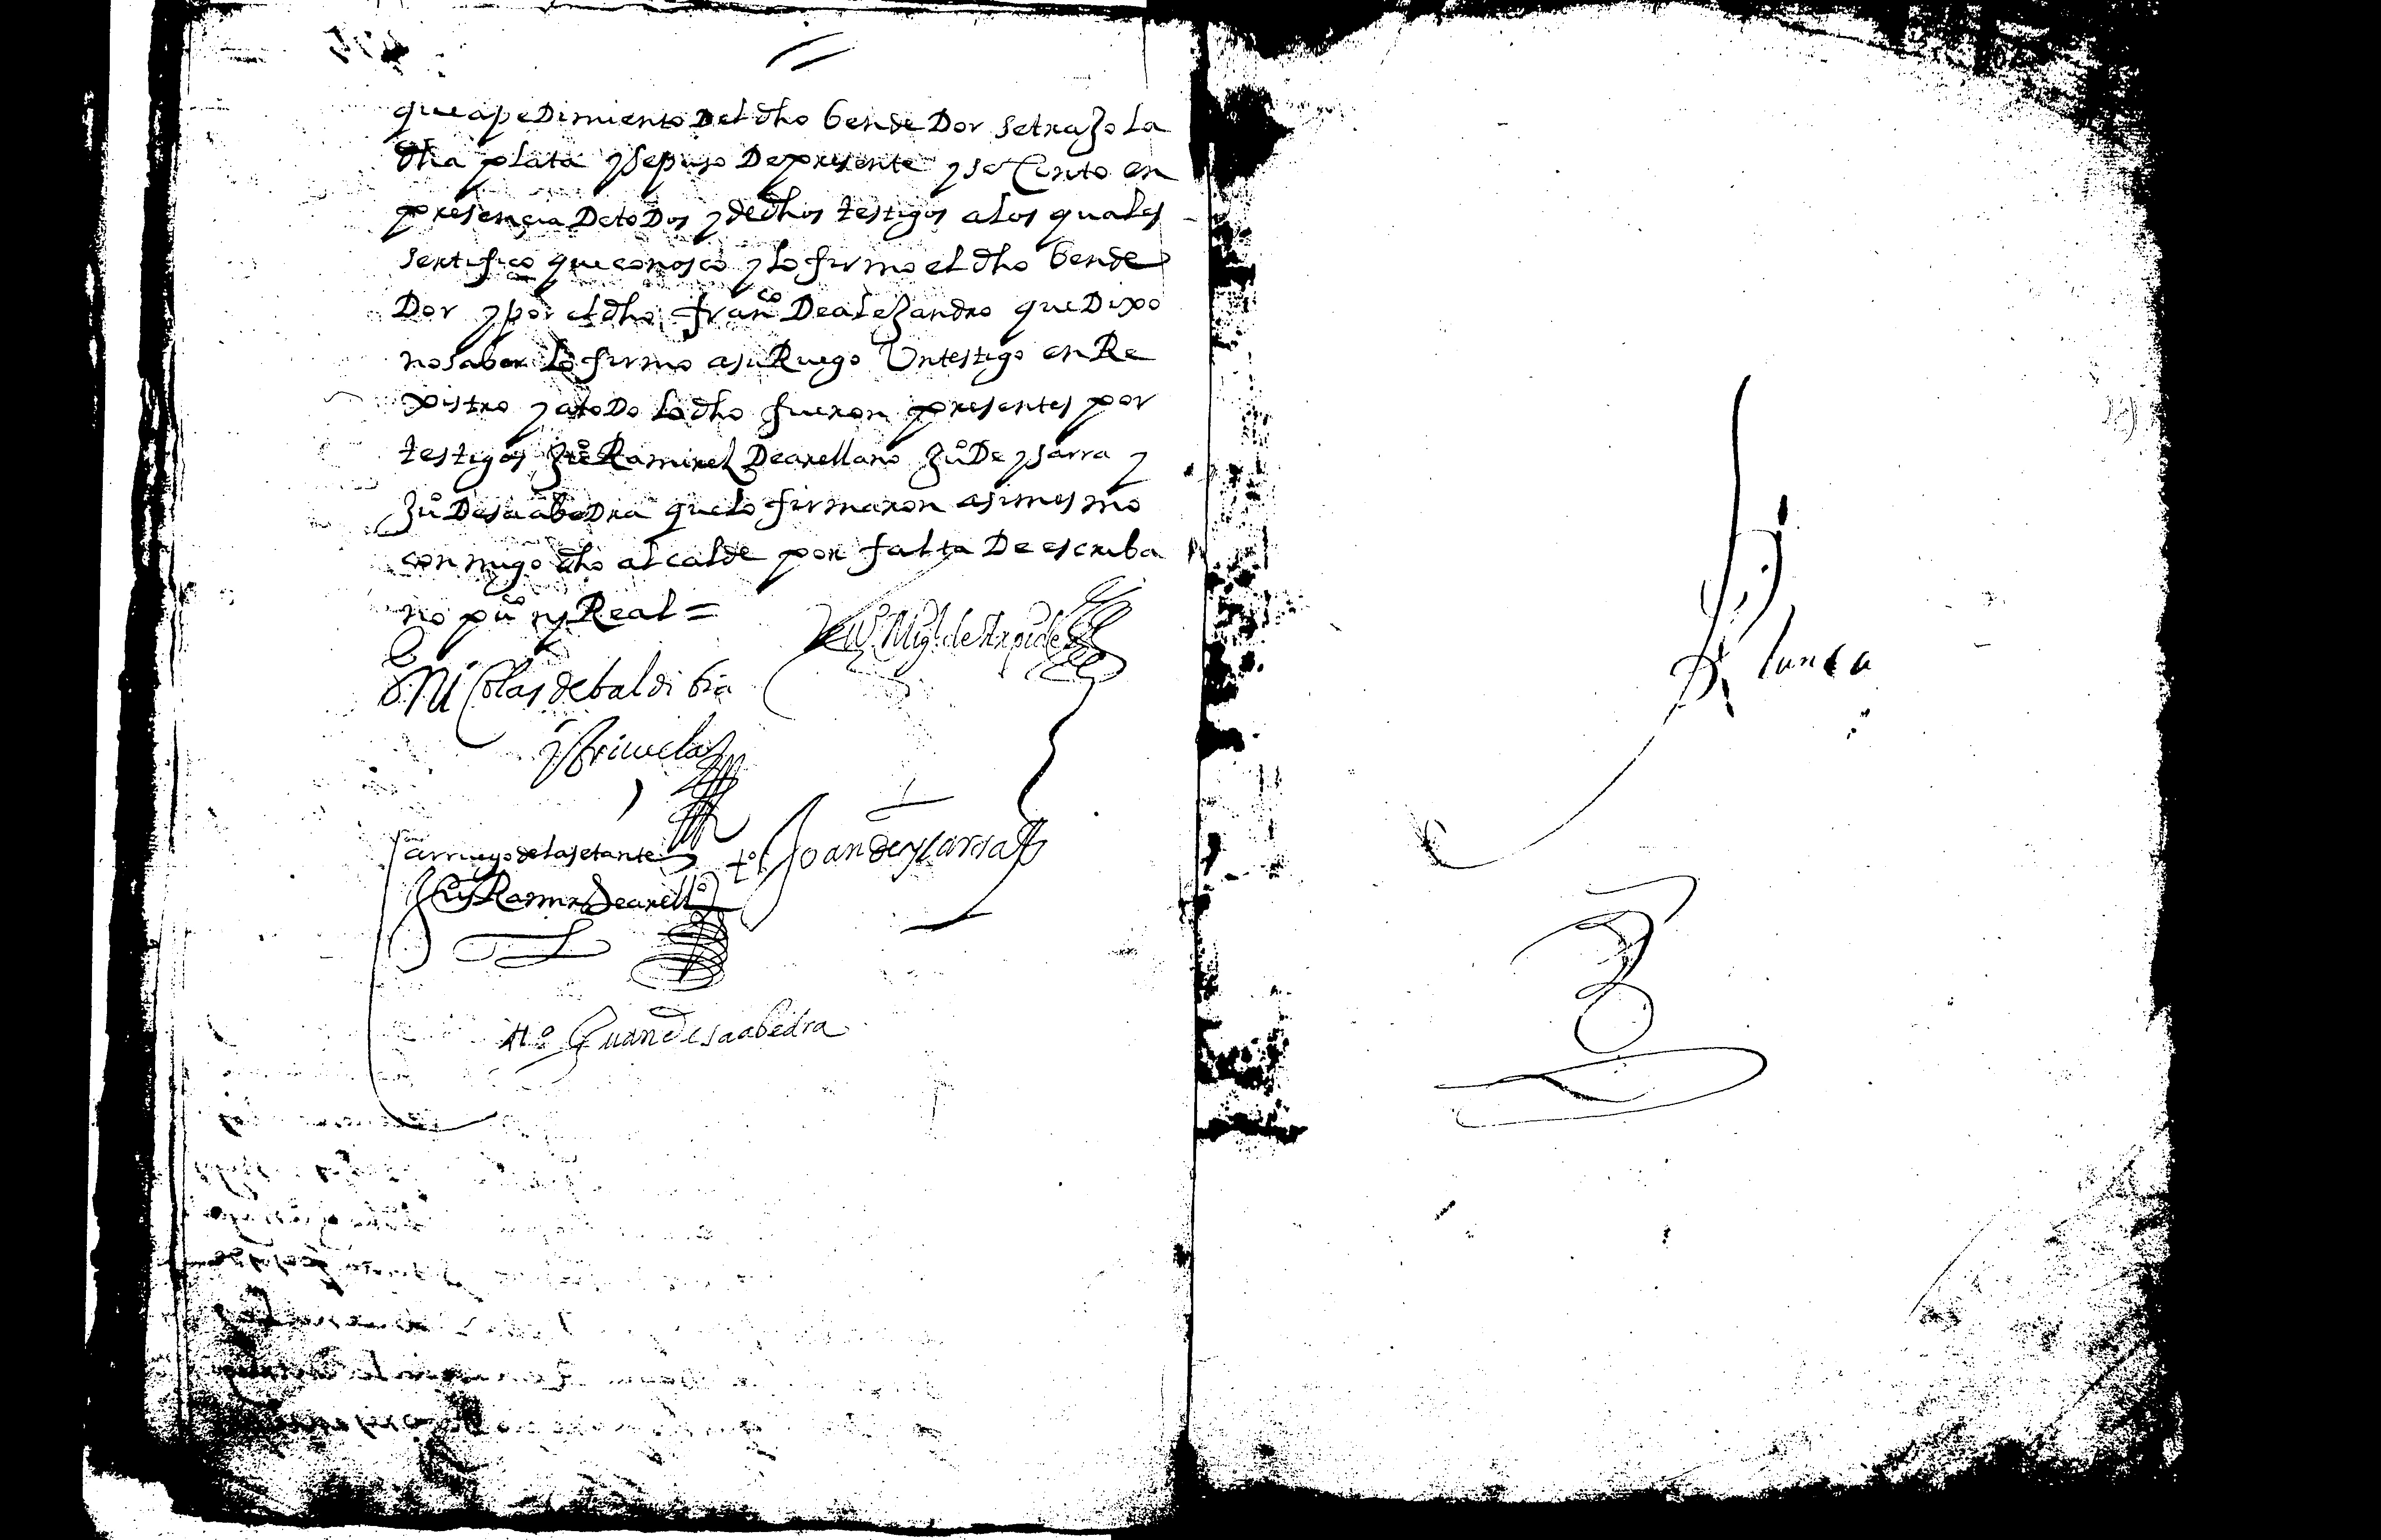 que a pedimiento del dho bendedor se traxo la
dha plata y se puso de presente y se Conto en
presençia de todos y de dhos testigos a los quales
sertifico que conosco y lo firmo el dho bende
dor y por el dho franco de alexandro que dixo
no saber lo firmo a su Ruego Un testigo en Re
xistro y a todo lo dho fueron presentes por
testigos Juo Ramirez de arellano Juo de ysarra y
Juo de saabedra que lo firmaron asimesmo
conmigo dho alcalde por falta de escriba
no puco ny Real =
Nicolas de baldibia
y Briçuela
a rruego del otorgante
to Joan de ysarra
Juo Ramirez de arello
to Juan de saabedra